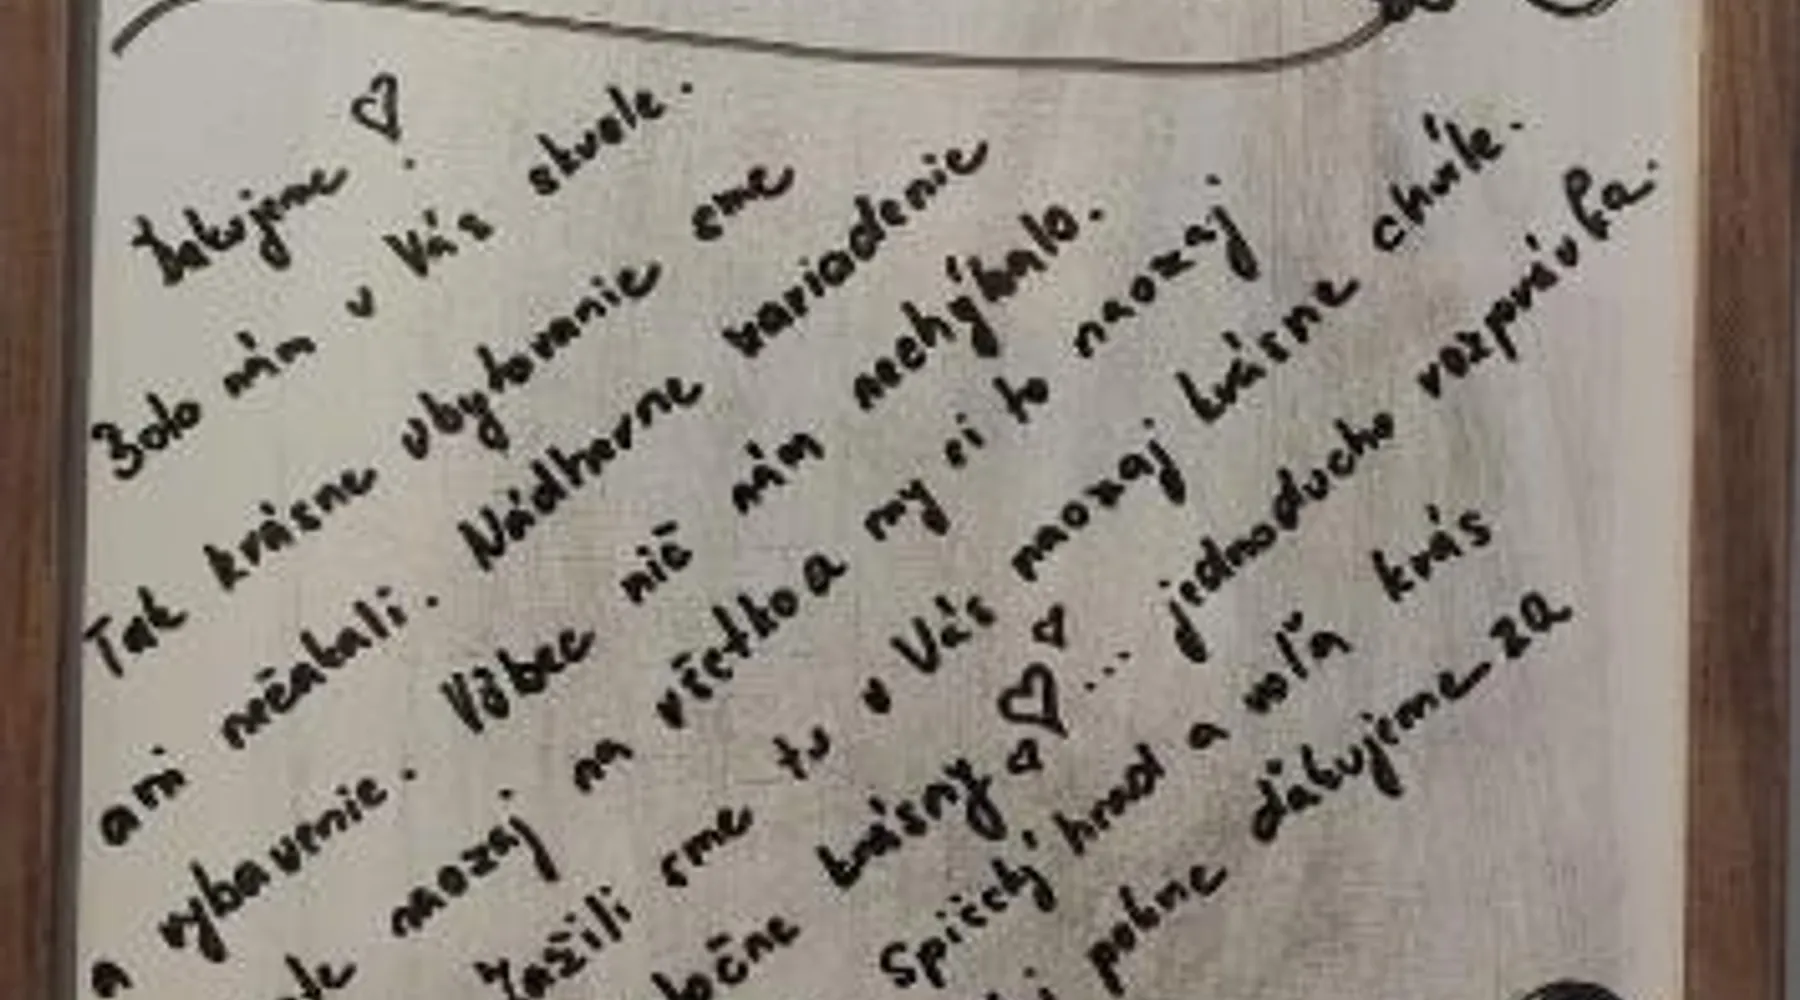 Ďakujeme ♡.
Bolo nám u Vás skvele.
Tak krásne ubytovanie sme
ani nečakali. Nádherne zariadenie
a vybavenie. Vôbec nič nám nechýbalo.
naozaj na všetko a my si to naozaj
Zažili sme tu u Vás naozaj krásne chvíle.
krásny ♡♡♡... jednoducho rozprávka.
Spišský hrad a veľa krás
pekne ďakujeme za